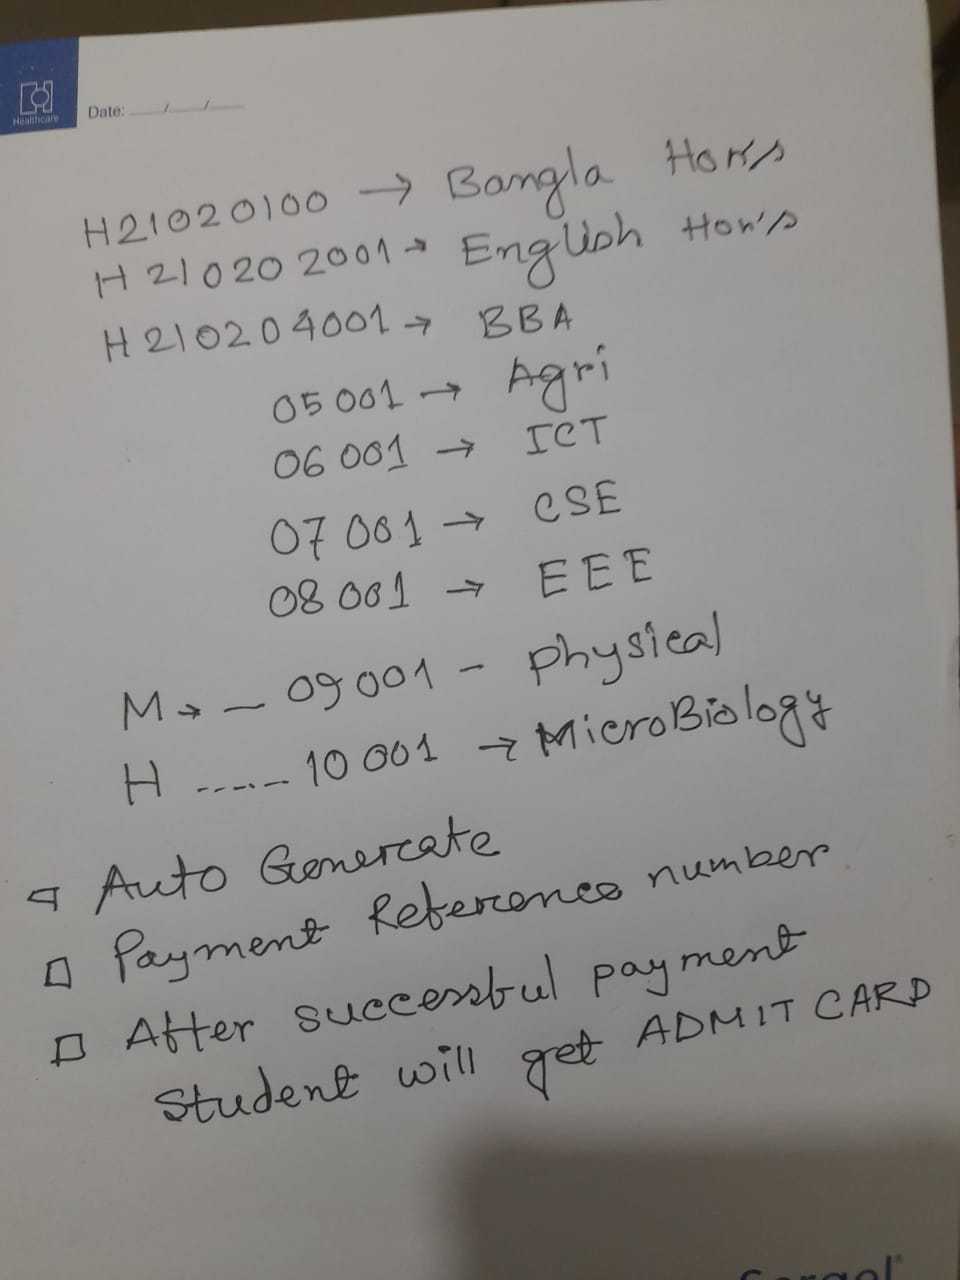 Healthcare
Date: __/__/__
H21020100 → Bangla Hons
H210202001 → English Hon's
H210204001 → BBA
05001 → Agri
06001 → ICT
07001 → CSE
08001 → EEE
M → — 09001 - physical
H ------ 10001 → MicroBiology
Auto Genercate
Payment Reference number
After successful payment
student will get ADMIT CARD